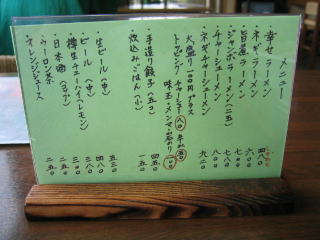 メニュー
・幸せラーメン 四八〇
・ネギラーメン 六〇〇
・旨煮ラーメン 七八〇
・ジャンボラーメン(二玉)
・チャーシューメン 七八〇
・ネギチャーシューメン 九二〇
大盛り 一〇〇円プラス
トッピング チャーシュー 八〇
味玉・メンマ・岩のり 一〇〇
・手造り餃子(五コ) 四五〇
・炊込みごはん(小) 一五〇
・生ビール(中) 五三〇
・ビール(中) 四八〇
・樽生チューハイ(レモン) 三八〇
・日本酒
・ウーロン茶 二五〇
・オレンジジュース 二五〇